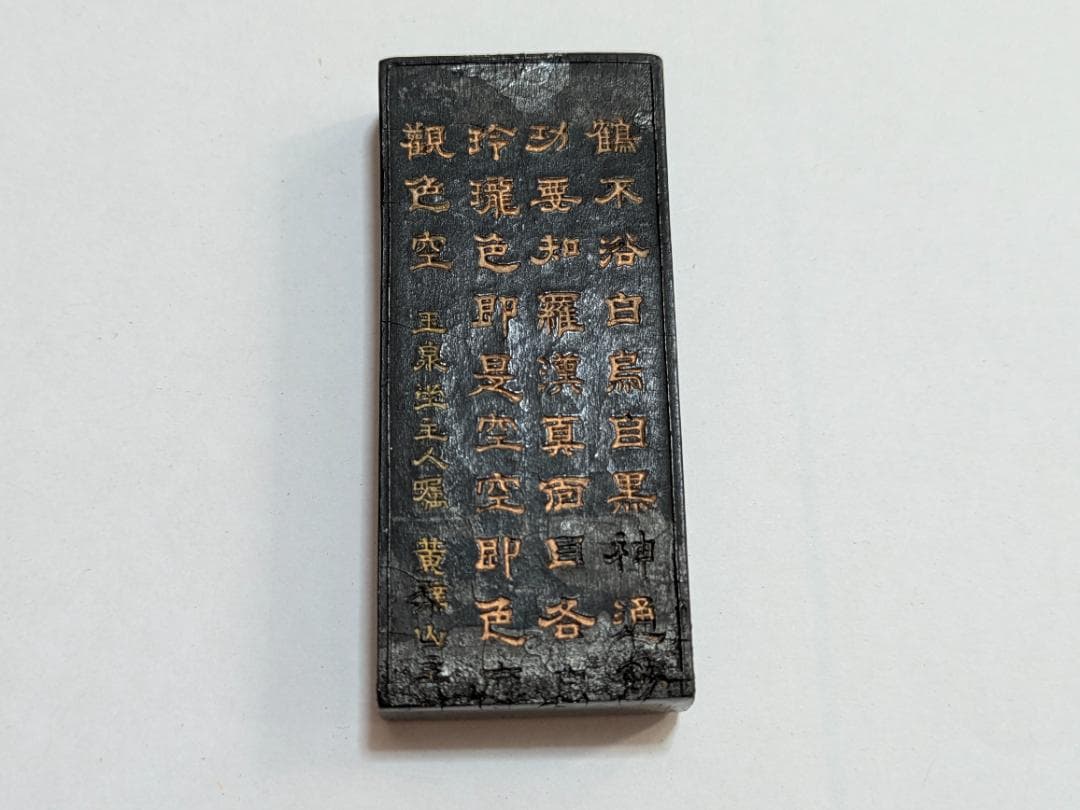 鶴不浴白烏自黑神通
功要知羅漢真面目各
玲瓏色即是空空即色
觀色空 玉泉坐主人囑 黃蘗山